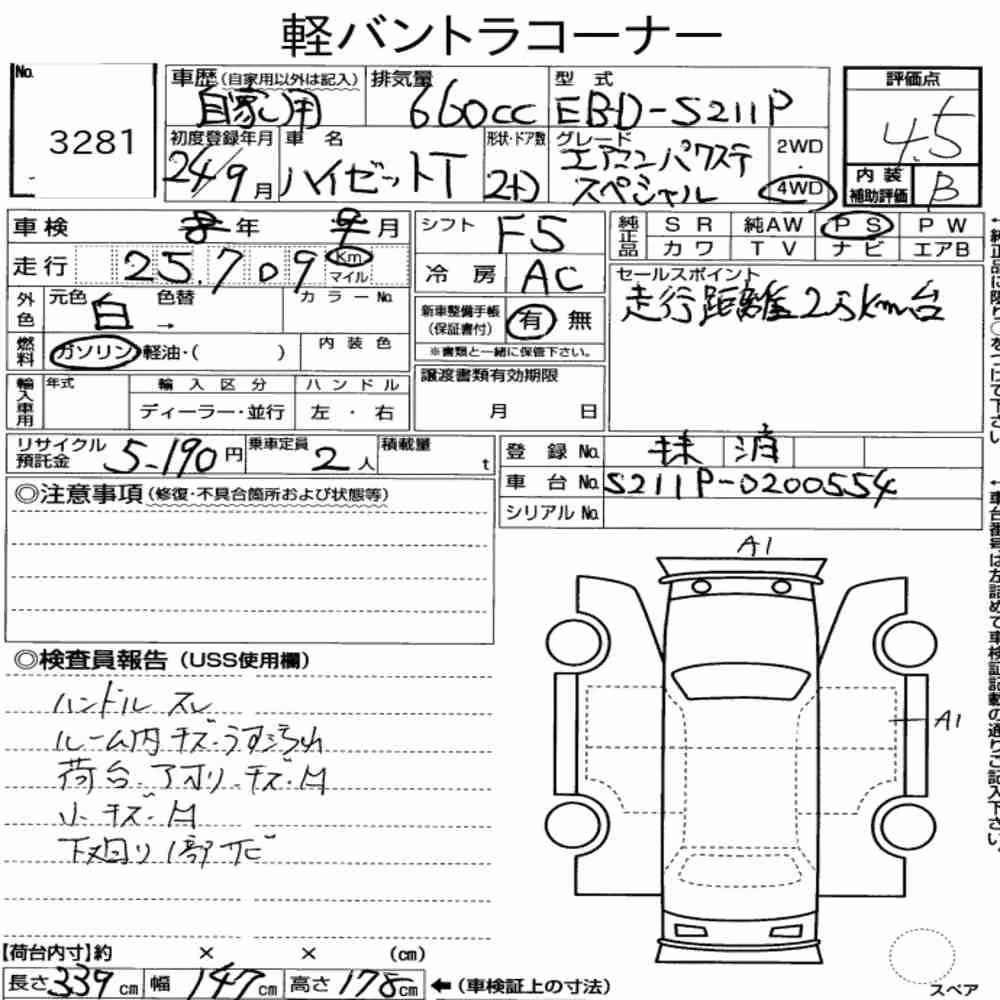 軽バントラコーナー
No.
3281
車歴(自家用以外は記入)
自家用
排気量
660cc
型 式
EBD-S211P
評価点
4.5
初度登録年月
24/9月
車 名
ハイゼットT
形状・ドア数
2ﾄ
グレード
エアコンパワステ
スペシャル
2WD
・
4WD
内 装
補助評価
B
車検 年 月
シフト
F5
純正品
SR 純AW PS PW
カワ TV ナビ エアB
走行
25,709
Km
マイル
冷 房
AC
セールスポイント
走行距離2万Km台
外色
元色
白
色替
→
カラーNo.
新車整備手帳
(保証書付)
有 無
※書類と一緒に保管下さい。
燃料
ガソリン・軽油・( )
内 装 色
輸入車用
年式
輸 入 区 分
ディーラー・並行
ハ ン ド ル
左 ・ 右
譲渡書類有効期限
月 日
リサイクル
預託金
5,190円
乗車定員
2人
積載量
t
登 録 No.
抹 消
車 台 No.
S211P-0200554
シリアルNo.
◎注意事項(修復・不具合箇所および状態等)
◎検査員報告(USS使用欄)
ハンドル スレ
ルーム内キズ・うす汚れ
荷台・アオリ・キズ・凹
小・キズ・凹
下廻り1部サビ
A1
A1
【荷台内寸】約 × × (cm)
長さ339cm 幅147cm 高さ178cm ←(車検証上の寸法)
スペア
↑純正品に限り○をつけて下さい
↑車台番号は左詰めで車検証記載の通りご記入下さい。